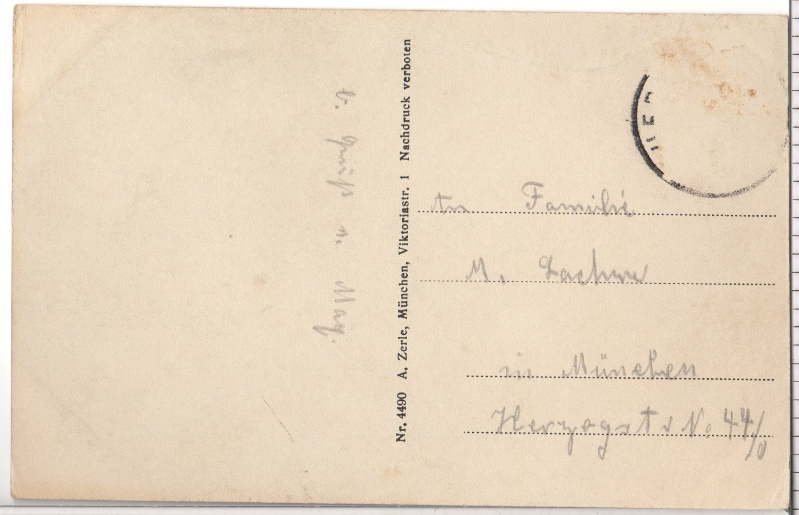 b. Gruß v. Max.
Nr. 4490 A. Zerle, München, Viktoriastr. 1 Nachdruck verboten
An Familie
M.
in München
Herzogstr No 44/0